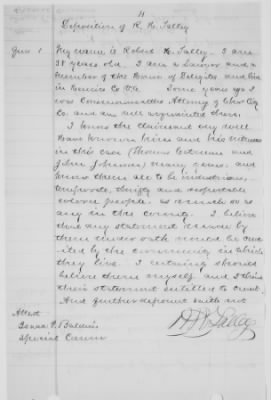 11
Deposition of R. H. Talley
Ques 1 My name is Robert H. Talley. I am
38 years old. I am a Lawyer and a
member of the House of Delegates and live
in Henrico Co Va. Some years ago I
was Commonwealths Attorney of Chas City
Co. and am well acquainted there.
I know the claimant very well
have known him and his witnesses
in this case (Thomas and
John Johnson) many years. and
know them all to be industrious,
temperate, thrifty and respectable
colored people. as much so as
any in the county. I believe
that any statement made by
them under oath would be
ited by the community in which
they live. I certainly should
believe them myself and I think
their statement entitled to credit.
And further deponent saith not
R H Talley
Attest
Isaac P. Baldwin
Special Comr